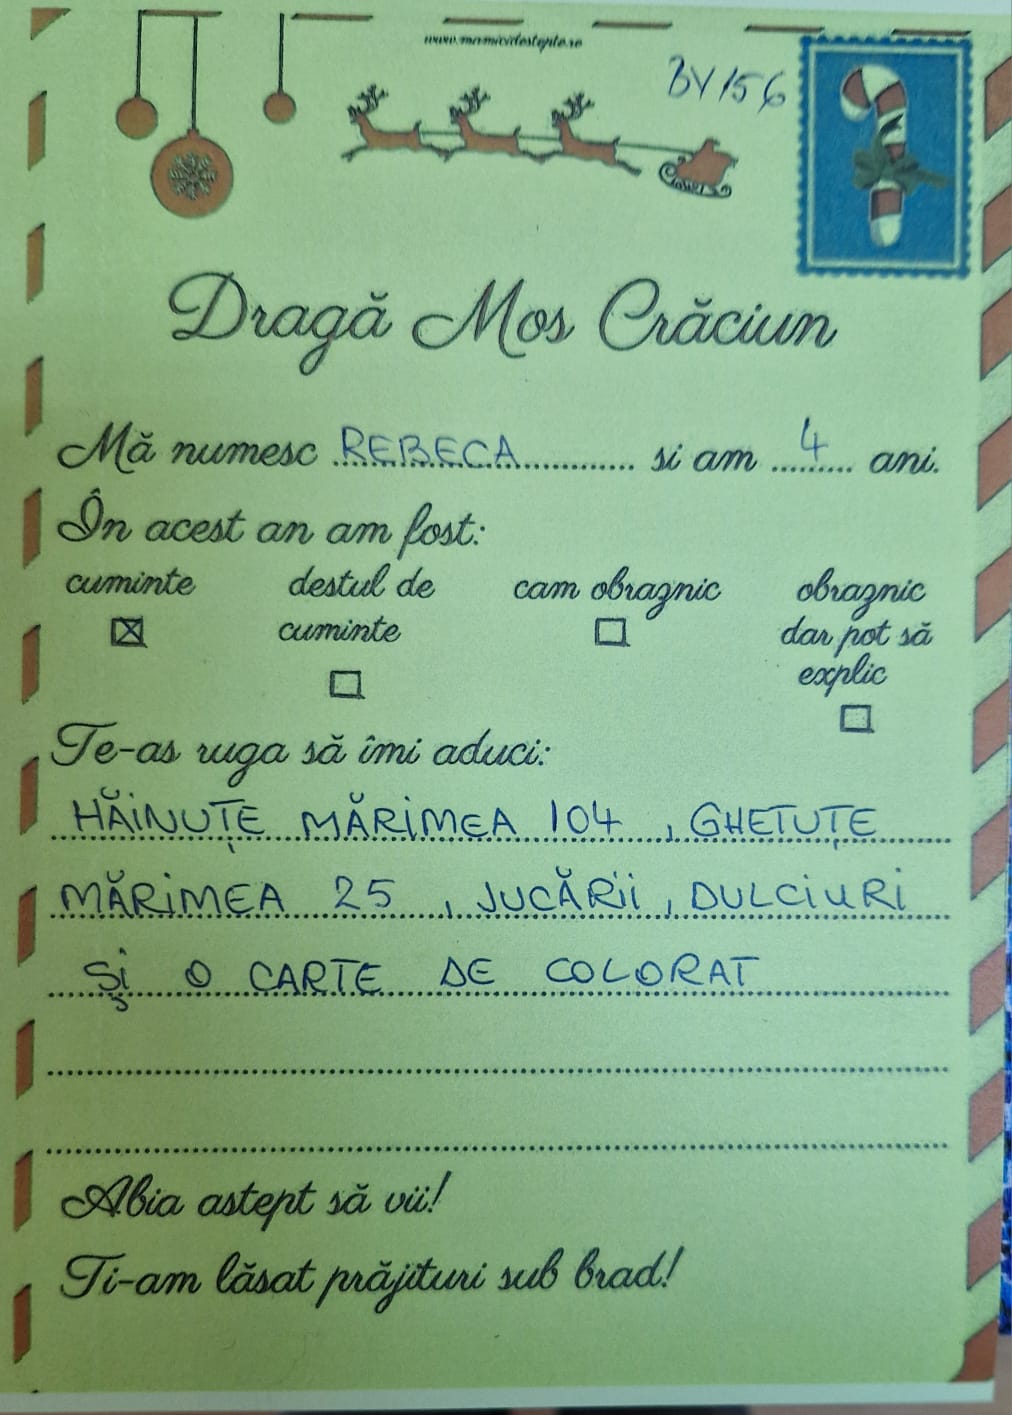 www.mamicidestepte.ro
BV156
Dragă Mos Crăciun
Mă numesc REBECA si am 4 ani.
În acest an am fost:
cuminte destul de cuminte cam obraznic obraznic dar pot să explic
Te-as ruga să îmi aduci:
HĂINUȚE MĂRIMEA 104, GHETUȚE
MĂRIMEA 25, JUCĂRII, DULCIURI
ȘI O CARTE DE COLORAT
Abia astept să vii!
Ti-am lăsat prăjituri sub brad!